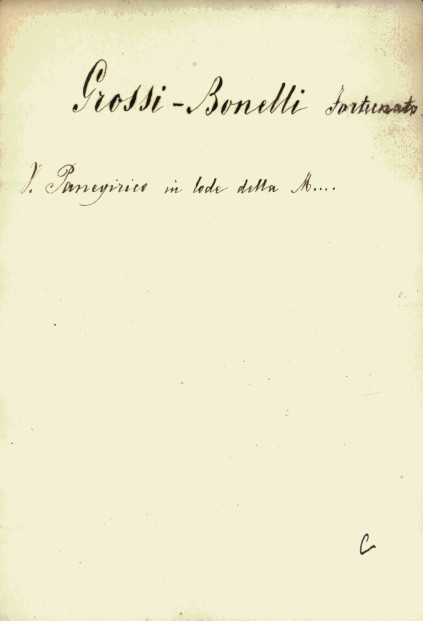 Grossi-Bonelli Fortunato
V. Panegirico in lode della M....
C